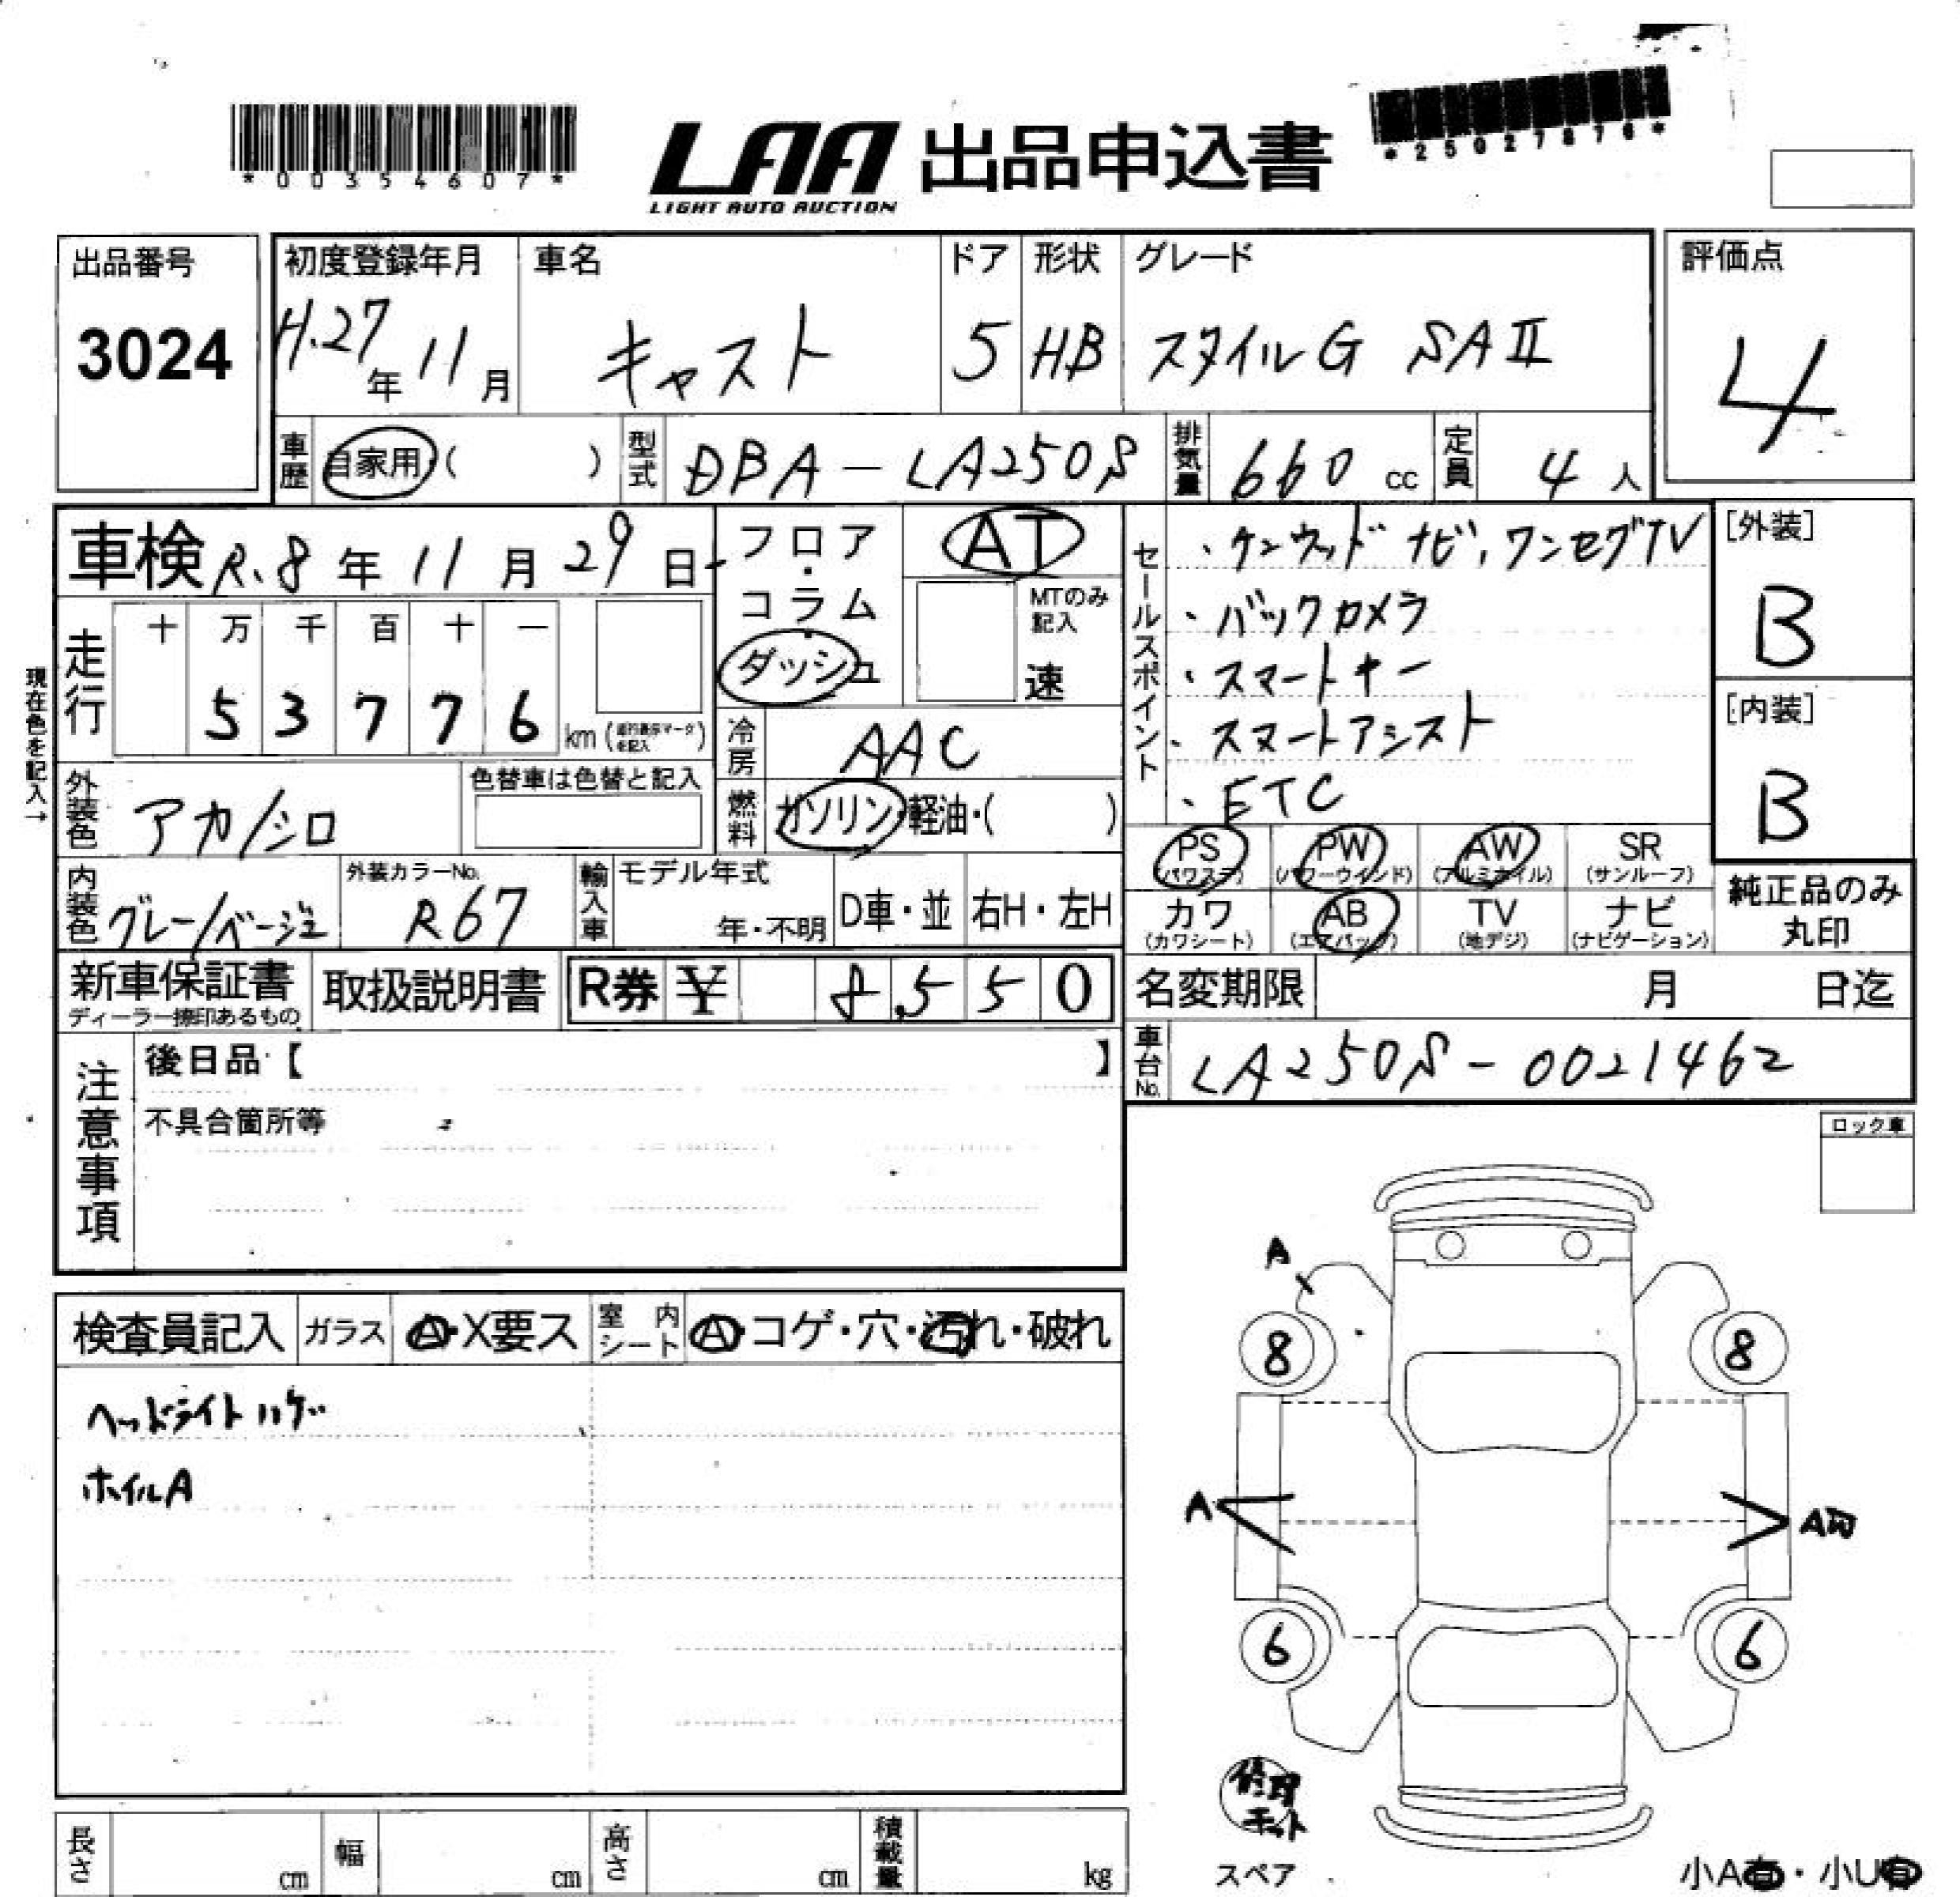 *00354607*
LAA 出品申込書
LIGHT AUTO AUCTION
*25027876*
出品番号
3024
初度登録年月
H.27年11月
車名
キャスト
ドア
5
形状
HB
グレード
スタイルG SAⅡ
評価点
4
車歴
自家用( )
型式
DBA-LA250S
排気量
660 cc
定員
4 人
車検 R.8年11月29日
フロア・コラム・ダッシュ
AT
MTのみ記入
速
セールスポイント
・ケンウッドナビ、ワンセグTV
・バックカメラ
・スマートキー
・スマートアシスト
・ETC
[外装]
B
[内装]
B
現在色を記入→
走行
十 万 千 百 十 一
5 3 7 7 6 km
冷房
AAC
外装色
アカ/シロ
色替車は色替と記入
燃料
ガソリン・軽油・( )
PS
(パワステ)
PW
(パワーウインド)
AW
(アルミホイル)
SR
(サンルーフ)
内装色
グレー/ベージュ
外装カラーNo.
R67
輸入車
モデル年式
年・不明
D車・並
右H・左H
カワ
(カワシート)
AB
(エアバック)
TV
(地デジ)
ナビ
(ナビゲーション)
純正品のみ
丸印
新車保証書
ディーラー捺印あるもの
取扱説明書
R券 ¥ 8,550
名変期限 月 日迄
注意事項
後日品【 】
不具合箇所等
車台No.
LA250S-0021462
ロック車
検査員記入
ガラス
A・X要ス
室内シート
A・コゲ・穴・汚れ・破れ
ヘッドライトハゲ
ホイルA
A
8
8
A
A凹
6
6
修理キット
スペア
小A有・小U有
長さ cm
幅 cm
高さ cm
積載量 kg